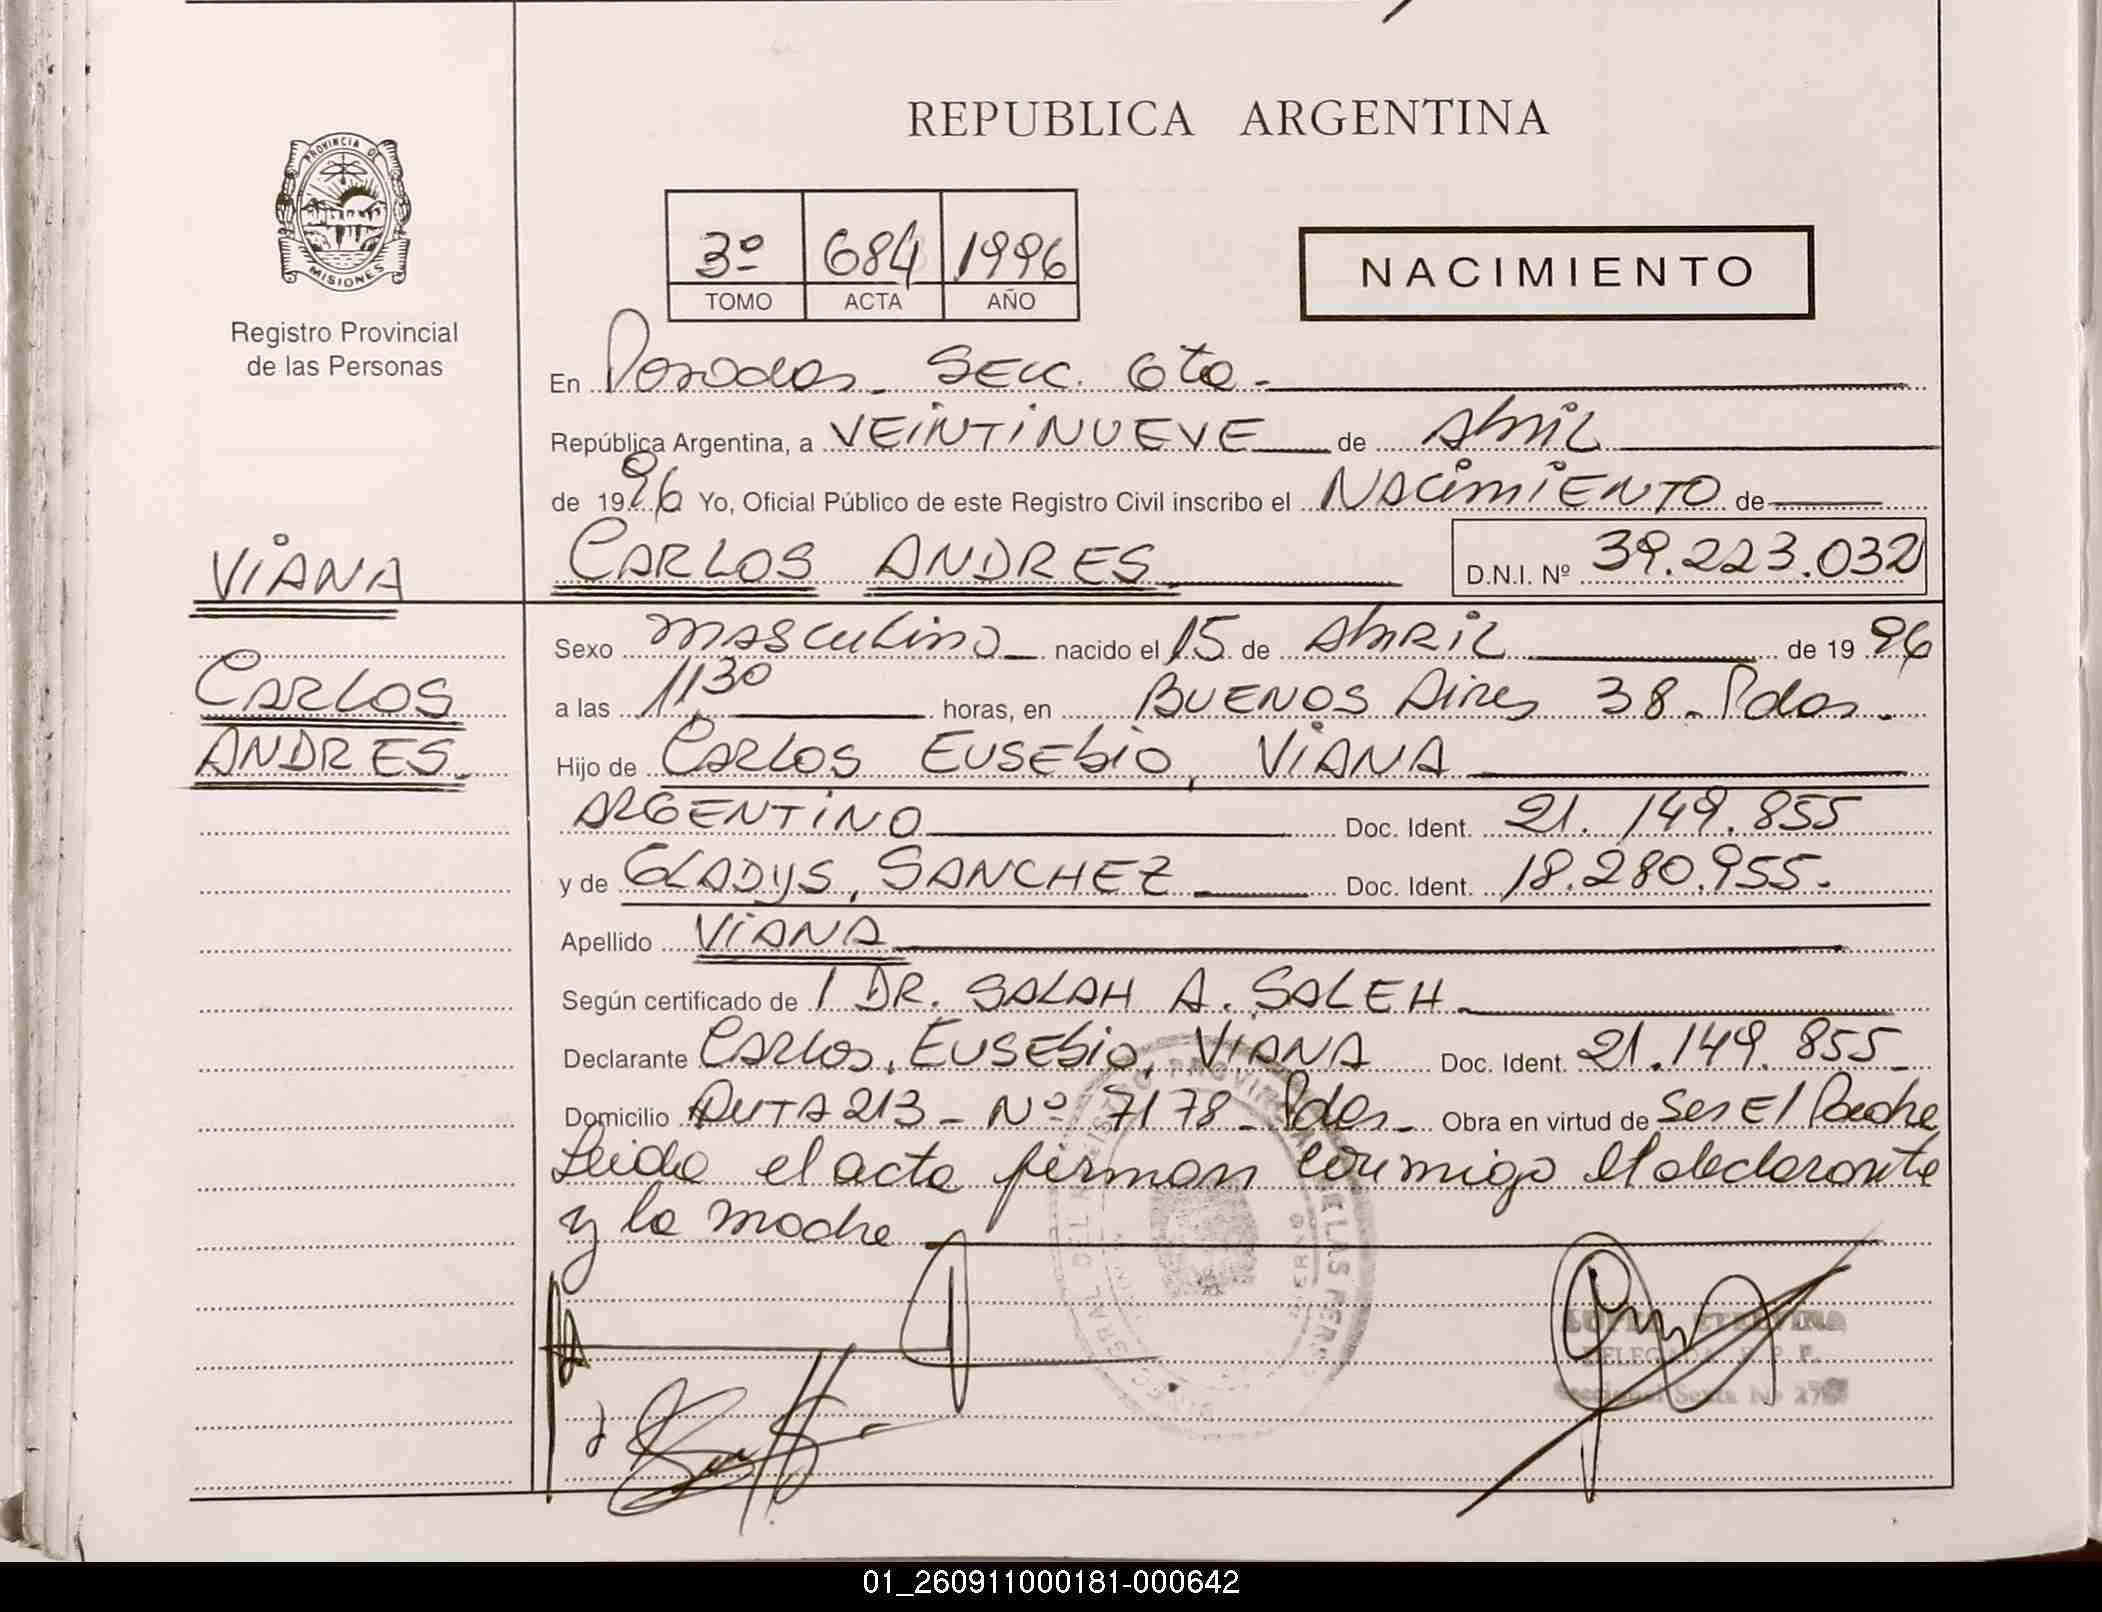 REPUBLICA ARGENTINA
PROVINCIA DE
MISIONES
Registro Provincial
de las Personas
3º 684 1996
TOMO ACTA AÑO
NACIMIENTO
En Posadas. SECC. 6ta.
República Argentina, a VEINTINUEVE de Abril
de 1996 Yo, Oficial Público de este Registro Civil inscribo el NACIMIENTO de
VIANA
CARLOS ANDRES. D.N.I. Nº 39.223.032
CARLOS
ANDRES.
Sexo MASCULINO nacido el 15 de ABRIL de 1996
a las 1130 horas, en BUENOS Aires 38. Pdas.
Hijo de CARLOS EUSEBIO, VIANA
ARGENTINO Doc. Ident. 21.149.855
y de GLADYS, SANCHEZ Doc. Ident. 18.280.955.
Apellido VIANA
Según certificado de DR. SALAH A. SALEH.
Declarante CARLOS, EUSEBIO, VIANA Doc. Ident. 21.149.855
Domicilio RUTA 213 - Nº 7178 - Pdas. Obra en virtud de Ser El Padre
Leida el acta firman conmigo el declarante
y la madre
DELEGADA R.P.P.
Seccional Sexta Nº
01_260911000181-000642